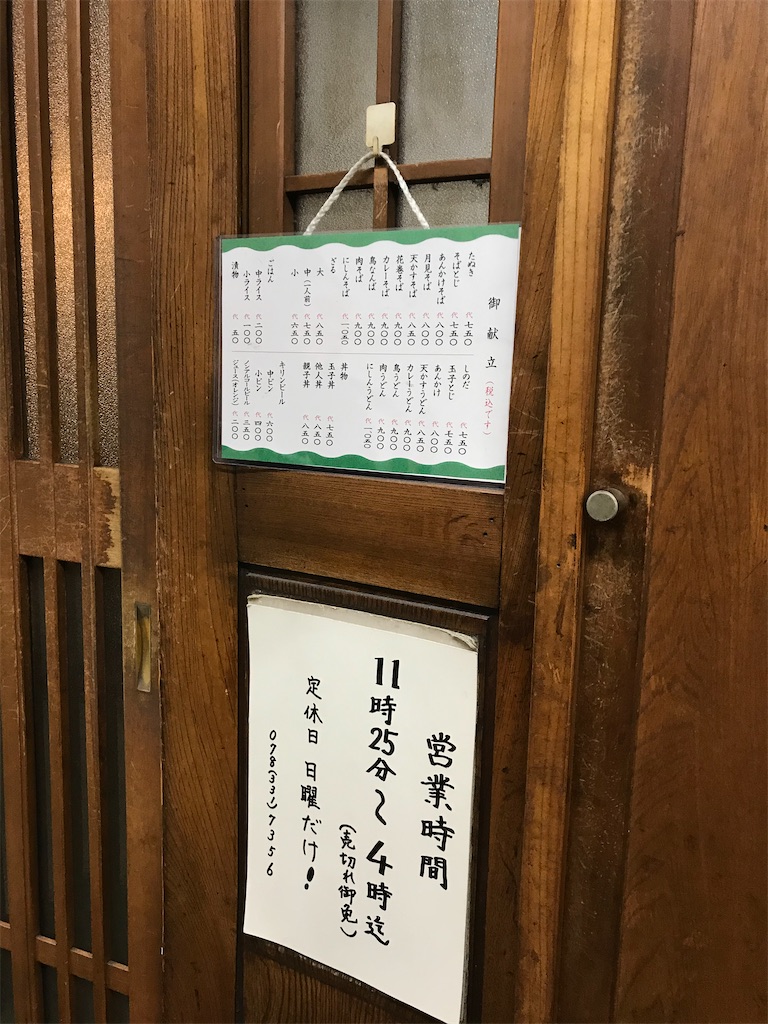 御献立（税込です）
たぬき 代 七五〇
そばとじ 代 七五〇
あんかけそば 代 八〇〇
月見そば 代 八〇〇
天かすそば 代 八五〇
花巻そば 代 九〇〇
カレーそば 代 九〇〇
鳥なんば 代 九〇〇
肉そば 代 九〇〇
にしんそば 代 一〇五〇
ざる
大 代 八五〇
中（一人前） 代 七五〇
小 代 六五〇
ごはん
中ライス 代 二〇〇
小ライス 代 一〇〇
漬物 代 五〇
しのだ 代 七五〇
玉子とじ 代 七五〇
あんかけ 代 八〇〇
天かすうどん 代 八五〇
カレーうどん 代 九〇〇
鳥うどん 代 九〇〇
肉うどん 代 九〇〇
にしんうどん 代 一〇五〇
丼物
玉子丼 代 七五〇
他人丼 代 八五〇
親子丼 代 八五〇
キリンビール
中ビン 代 六〇〇
小ビン 代 四〇〇
ノンアルコールビール 代 三五〇
ジュース（オレンジ） 代 二〇〇
営業時間
11時25分〜4時迄
（売切れ御免）
定休日 日曜だけ！
078(331)7356